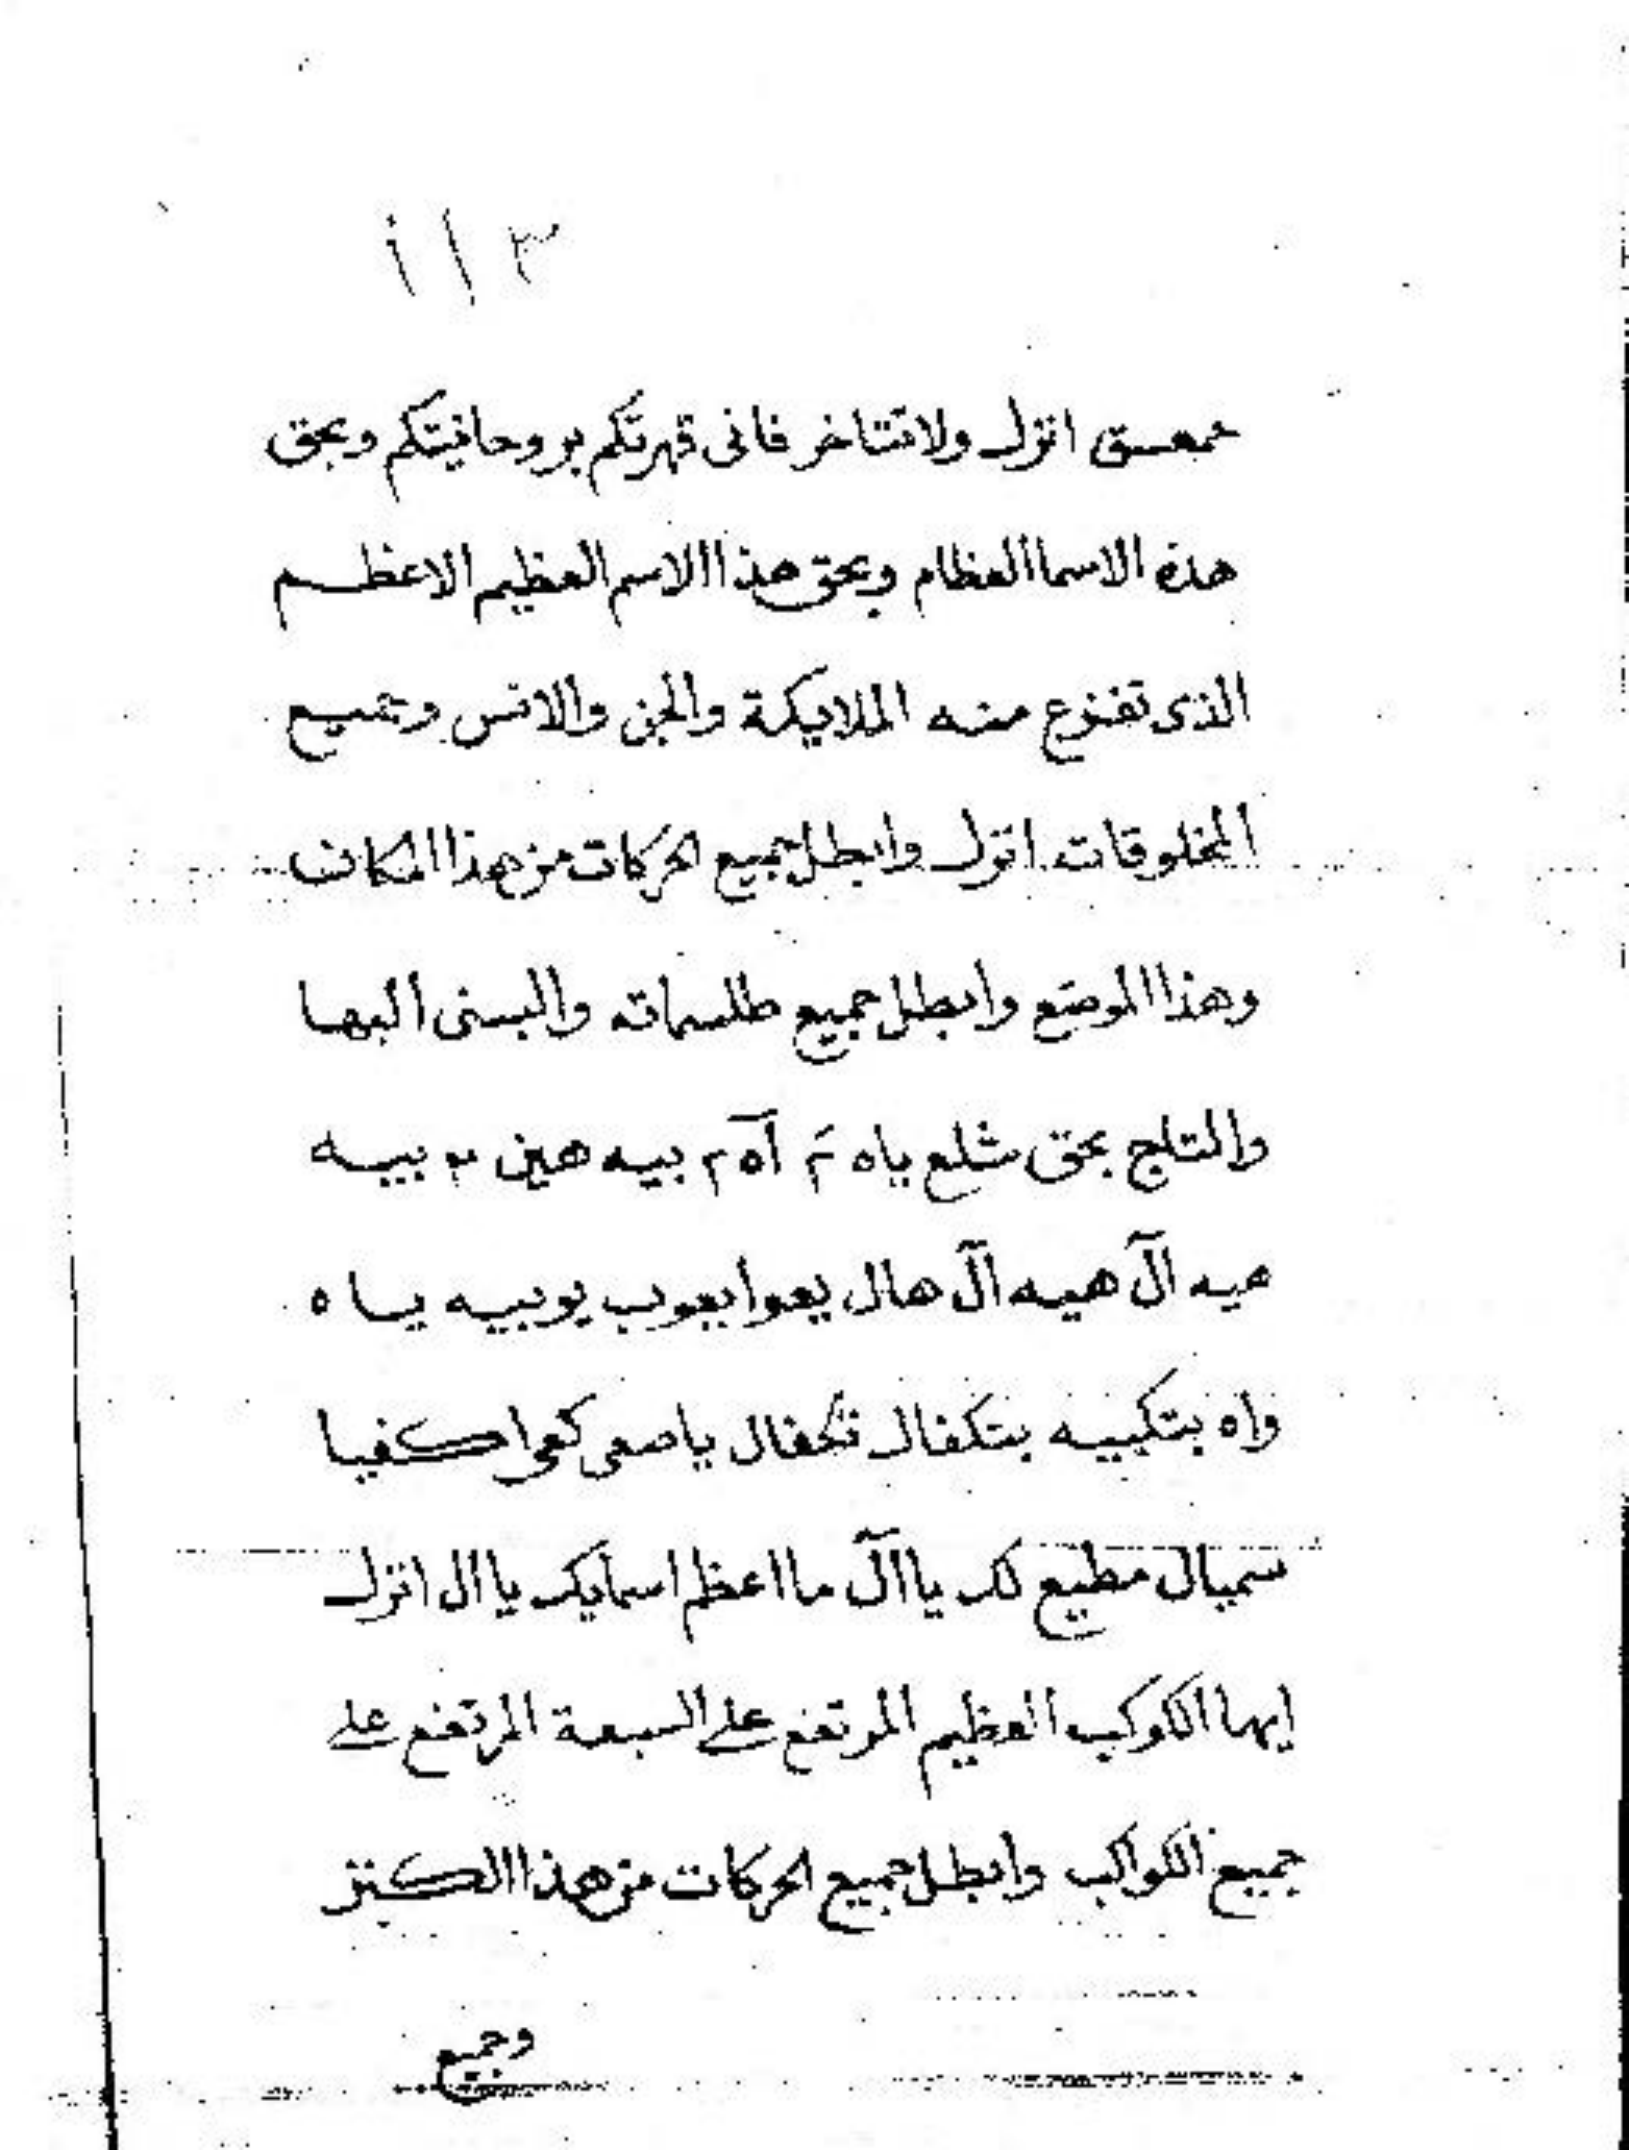 ١١٣
حمعسق انزل ولا تتاخر فانى قهرتكم بروحانيتكم وبحق
هذه الاسما العظام وبحق هذا الاسم العظيم الاعظم
الذى تفزع منه الملايكة والجن والانس وجميع
المخلوقات انزل وابطل جميع الحركات من هذا المكان
وهذا الموضع وابطل جميع طلسماته والبسنى البها
والتاج بحق شلع ياه بيه هين بيه
هيه آل هيه آل هال يعوا يعوب يوبيه ياه
واه بتكبيه بتكفال ياصعى كعى
سميال مطيع لك يا آل ما اعظم اسمايك يا ال انزل
ايها الكوكب العظيم المرتفع على السبعة المرتفع على
جميع الكواكب وابطل جميع الحركات من هذا الكنز
وجميع